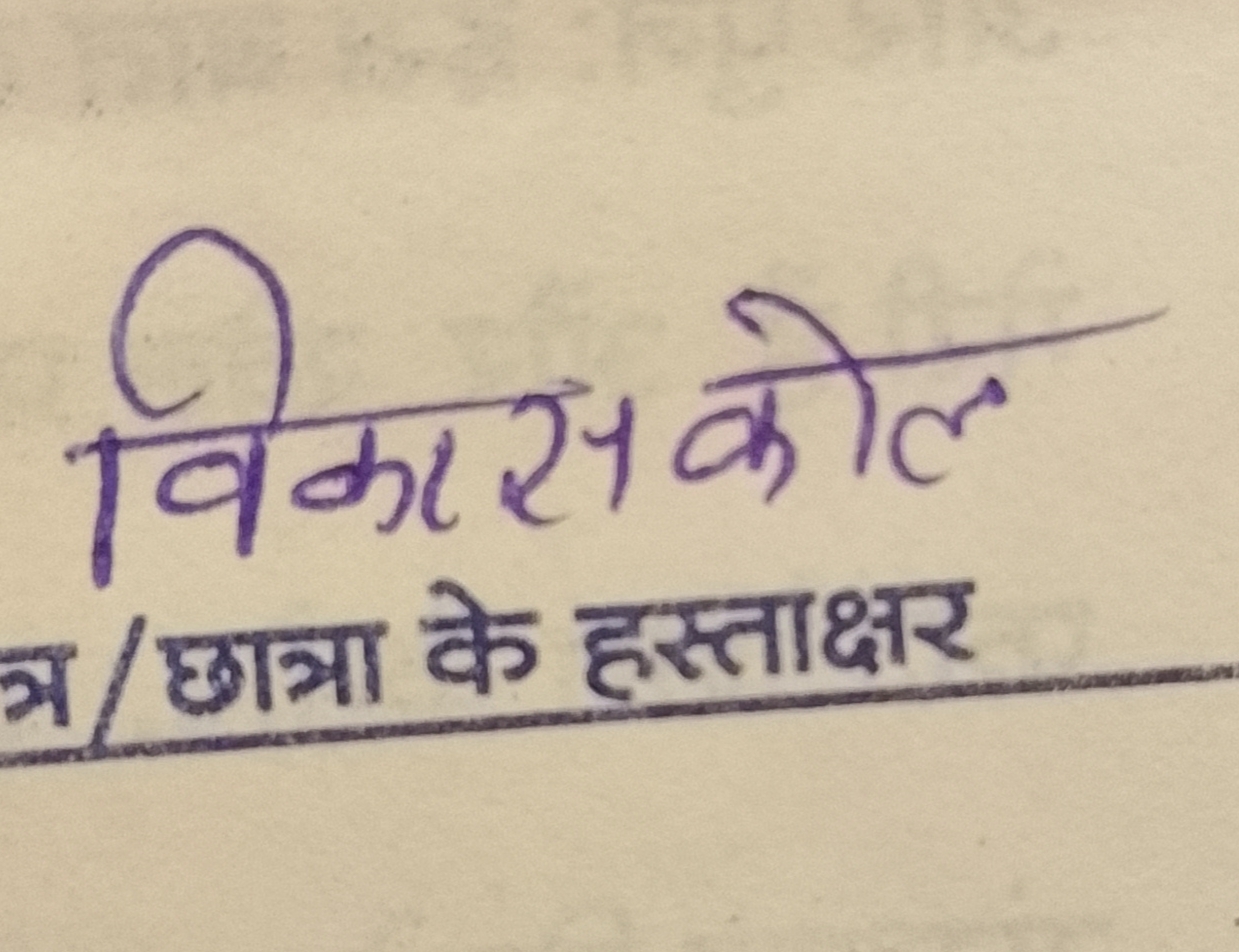 विकास कोल
त्र / छात्रा के हस्ताक्षर